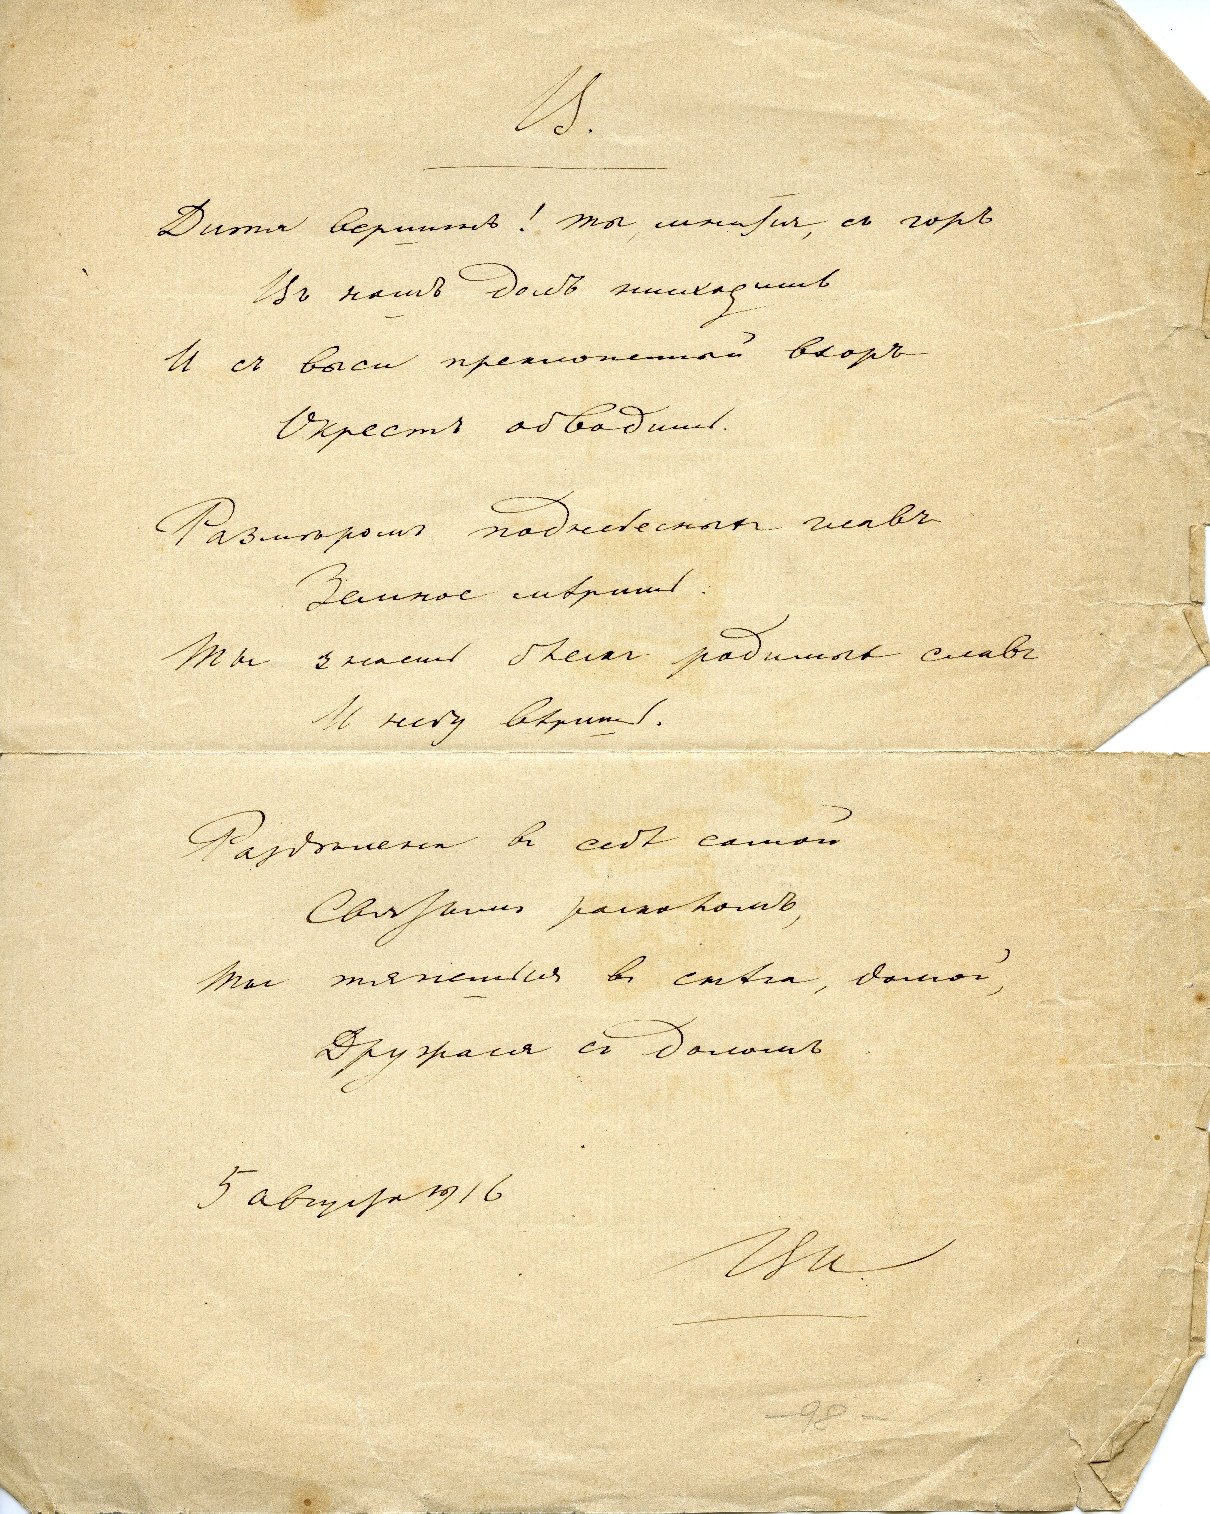 В.
Дитя вершинъ! ты, мнится, съ горъ
Въ нашъ долъ нисходишь
И съ выси преклоненный взоръ
Окрестъ обводишь.
Размѣромъ поднебесныхъ главъ
Земное мѣришь.
Ты знаешь бѣлыхъ родимыхъ славъ
И небу вѣришь.
Раздѣлена въ себѣ самой
Связуешь расколомъ,
Ты тянешься въ снѣга, домой,
Дружася съ доломъ
5 августа 1916
ВИ
–98–